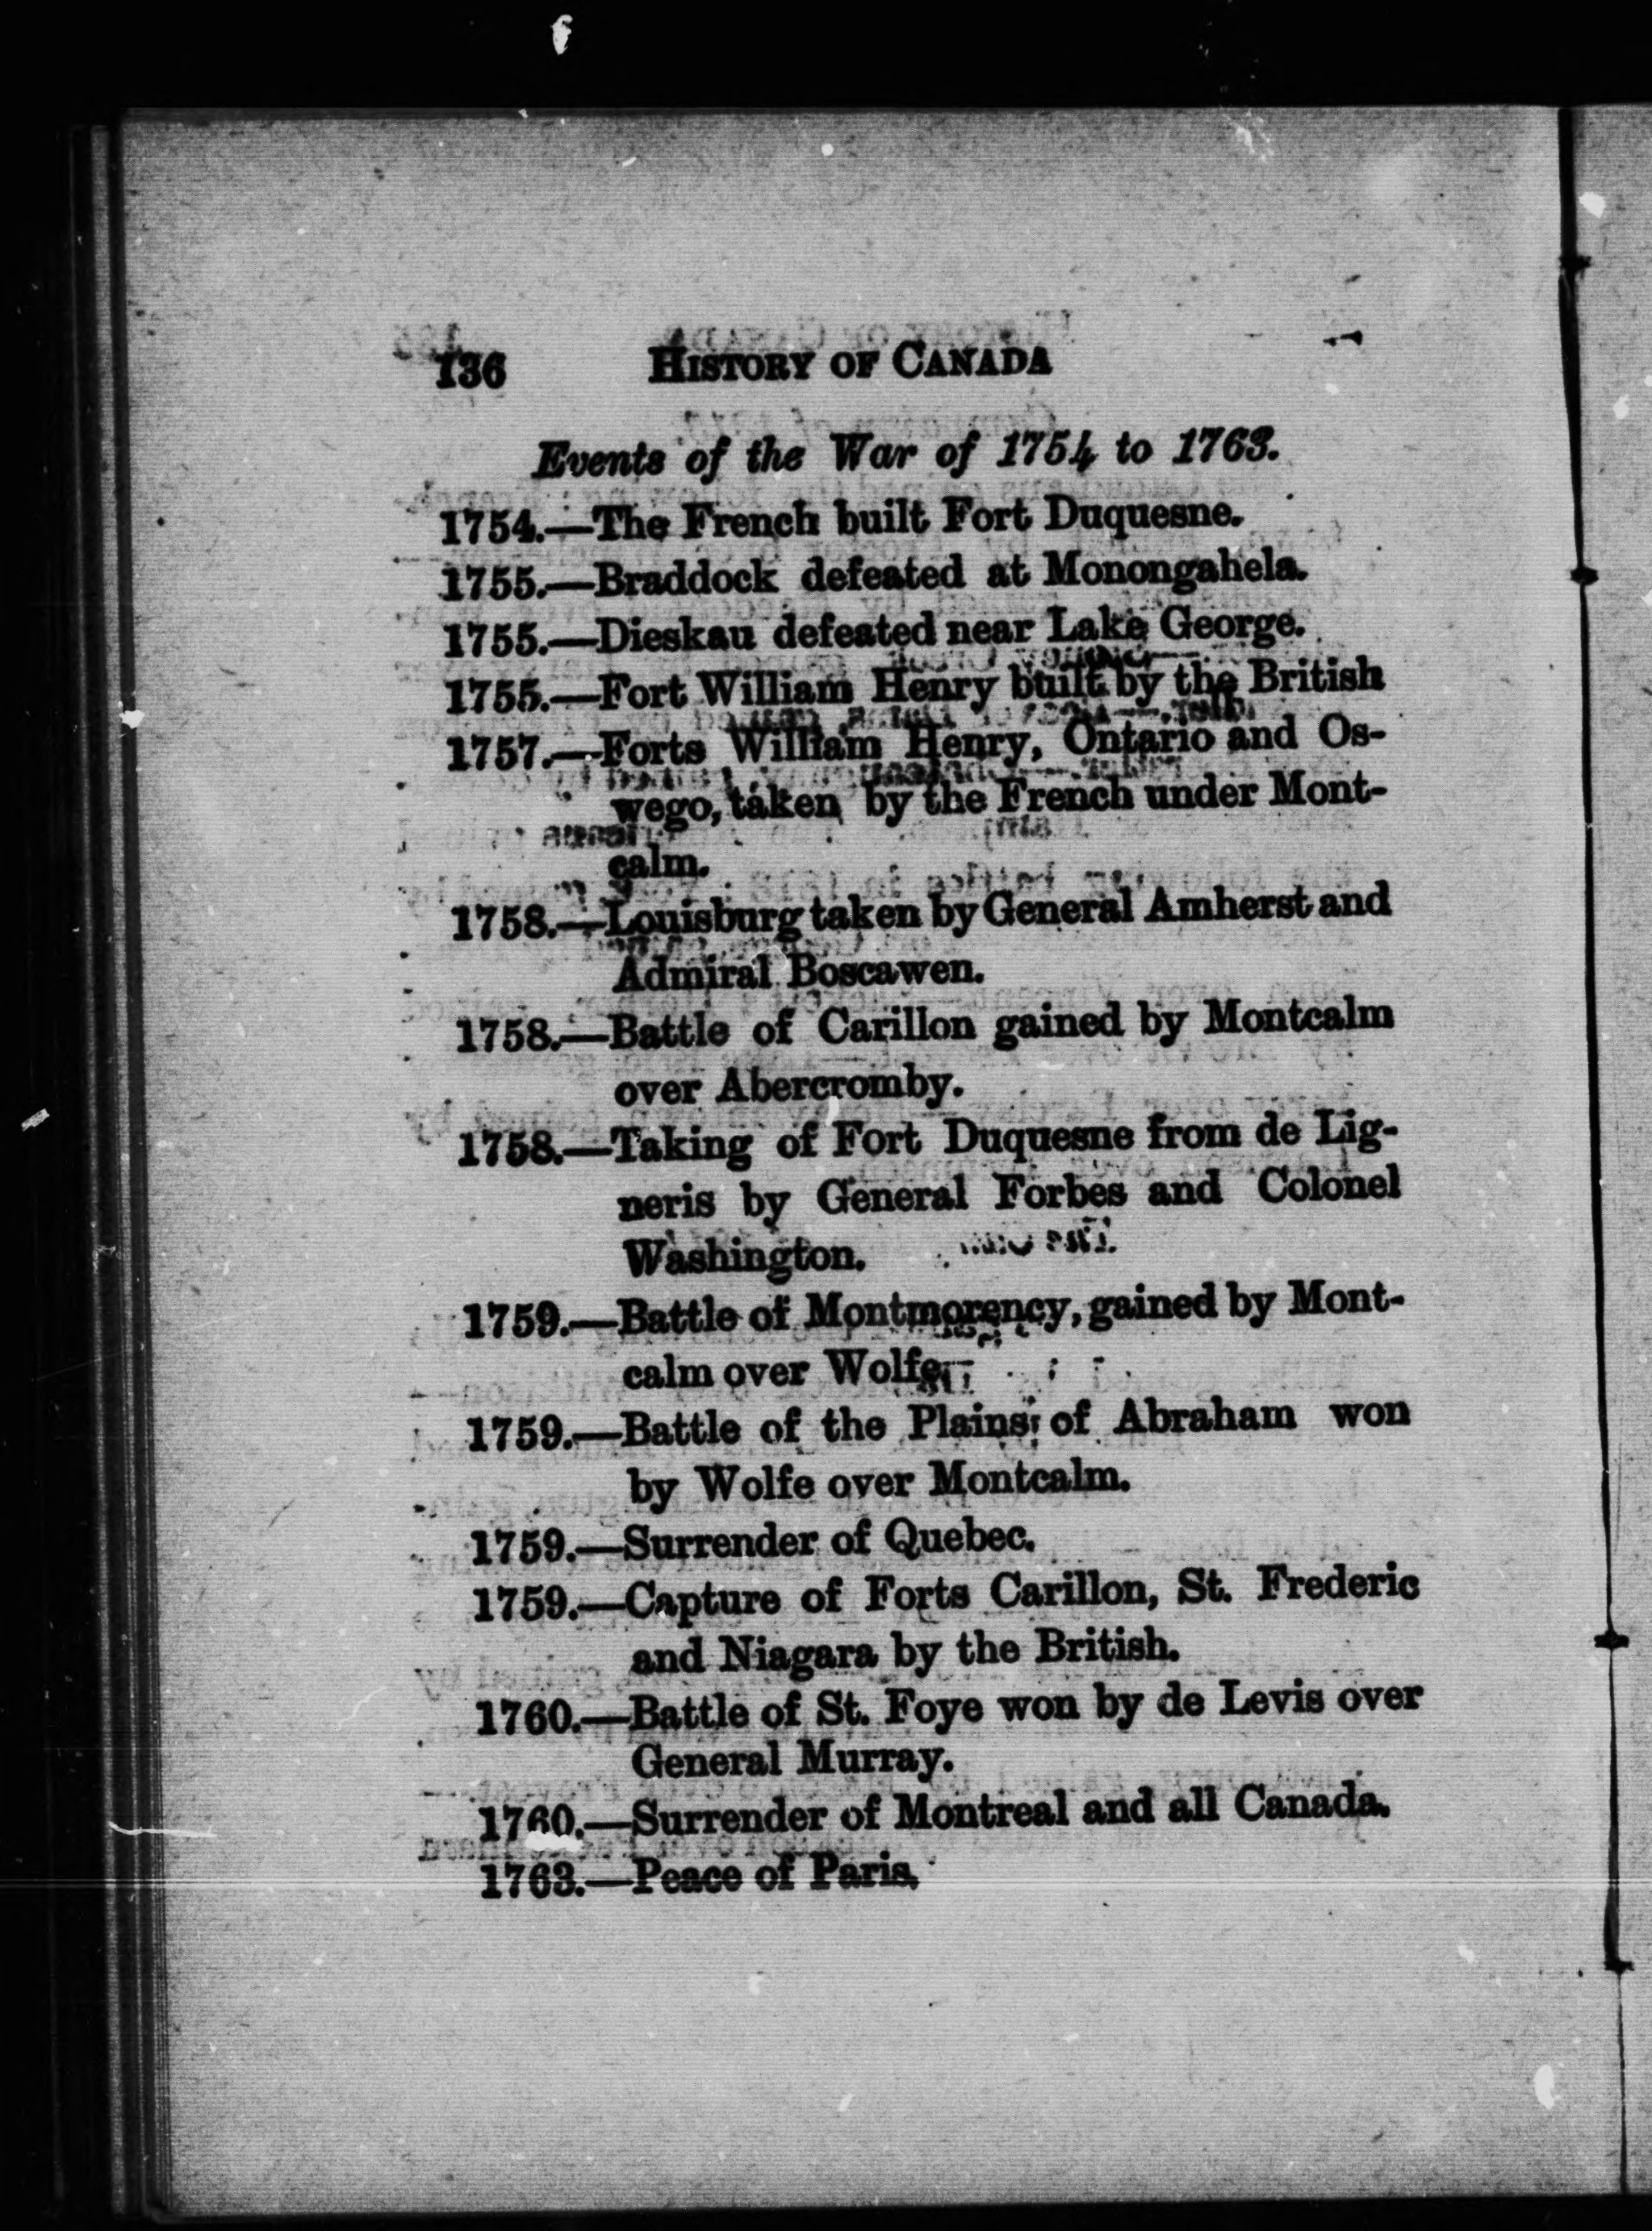 136 HISTORY OF CANADA
Events of the War of 1754 to 1763.
1754.—The French built Fort Duquesne.
1755.—Braddock defeated at Monongahela.
1755.—Dieskau defeated near Lake George.
1755.—Fort William Henry built by the British
1757.—Forts William Henry, Ontario and Os-
wego, taken by the French under Mont-
calm.
1758.—Louisburg taken by General Amherst and
Admiral Boscawen.
1758.—Battle of Carillon gained by Montcalm
over Abercromby.
1758.—Taking of Fort Duquesne from de Lig-
neris by General Forbes and Colonel
Washington.
1759.—Battle of Montmorency, gained by Mont-
calm over Wolfe
1759.—Battle of the Plains of Abraham won
by Wolfe over Montcalm.
1759.—Surrender of Quebec.
1759.—Capture of Forts Carillon, St. Frederic
and Niagara by the British.
1760.—Battle of St. Foye won by de Levis over
General Murray.
1760.—Surrender of Montreal and all Canada.
1763.—Peace of Paris.